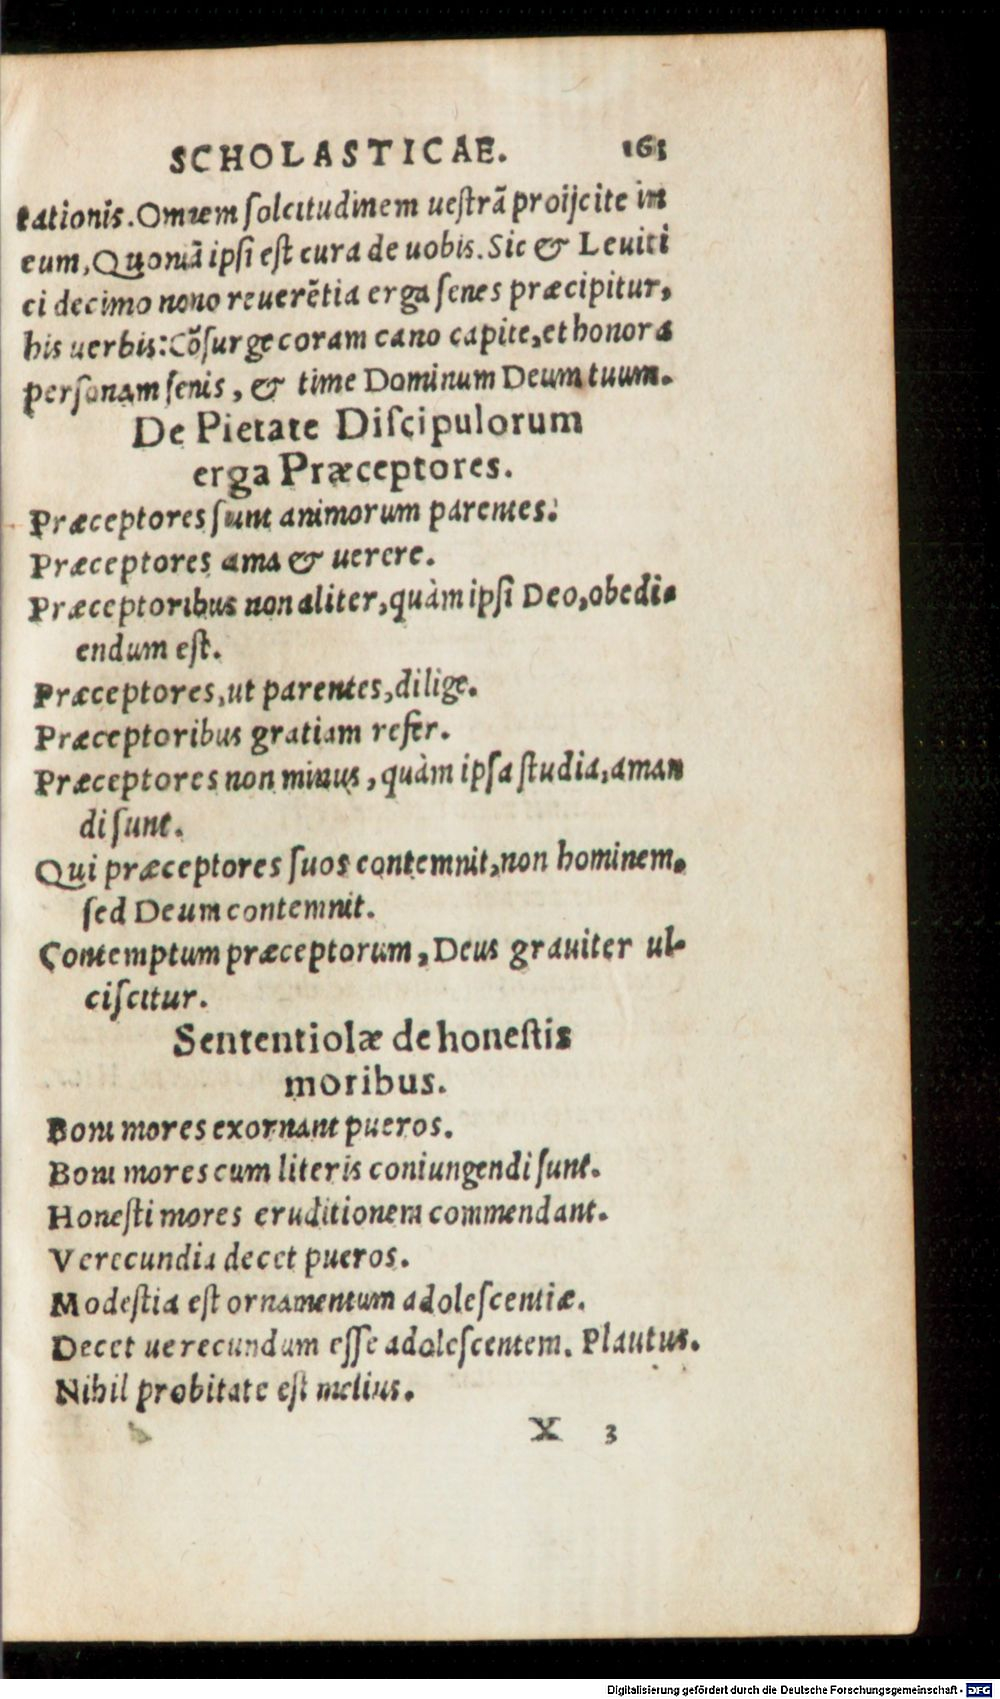 SCHOLASTICAE. 163
tationis. Omnem solcitudinem uestrā proijcite in
eum, Quoniā ipsi est cura de uobis. Sic & Leuiti
ci decimo nono reuerētia erga senes præcipitur,
his uerbis: Cōsurge coram cano capite, et honora
personam senis, & time Dominum Deum tuum.
De Pietate Discipulorum
erga Præceptores.
Præceptores sunt animorum parentes.
Præceptores ama & uerere.
Præceptoribus non aliter, quàm ipsi Deo, obedi-
endum est.
Præceptores, ut parentes, dilige.
Præceptoribus gratiam refer.
Præceptores non minus, quàm ipsa studia, aman
di sunt.
Qui præceptores suos contemnit, non hominem.
sed Deum contemnit.
Contemptum præceptorum, Deus grauiter ul-
ciscitur.
Sententiolæ de honestis
moribus.
Boni mores exornant pueros.
Boni mores cum literis coniungendi sunt.
Honesti mores eruditionem commendant.
Verecundia decet pueros.
Modestia est ornamentum adolescentiæ.
Decet uerecundum esse adolescentem. Plautus.
Nihil probitate est melius.
X 3
Digitalisierung gefördert durch die Deutsche Forschungsgemeinschaft - DFG